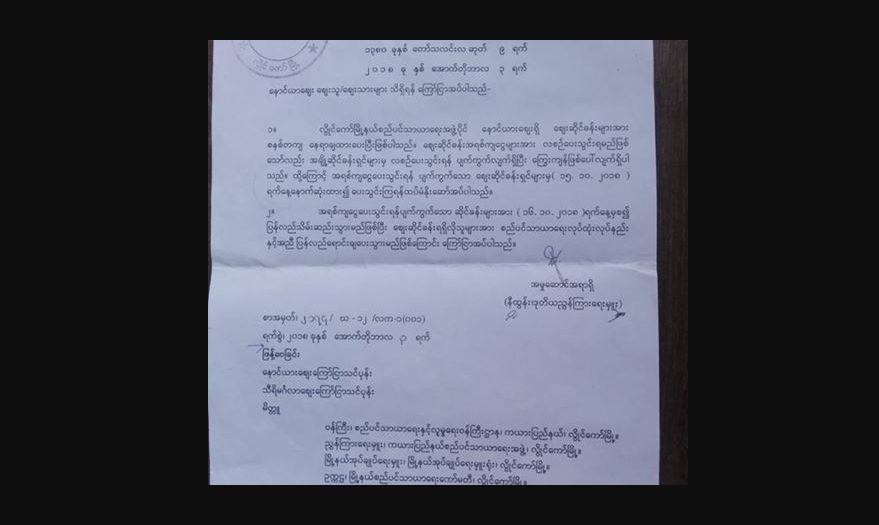 လွိုင်ကော်မြို့
၁၃၈၀ ခုနှစ် တော်သလင်းလ ဆုတ် ၉ ရက်
၂၀၁၈ ခု နှစ် အောက်တိုဘာလ ၃ ရက်
နောင်ယာဈေး ဈေးသူ/ဈေးသားများ သိရှိရန် ကြော်ငြာအပ်ပါသည်-
၁။ လွိုင်ကော်မြို့နယ်စည်ပင်သာယာရေးအဖွဲ့ပိုင် နောင်ယားဈေးရှိ ဈေးဆိုင်ခန်းများအား
စနစ်တကျ နေရာချထားပေးပြီးဖြစ်ပါသည်။ ဈေးဆိုင်ခန်းအရစ်ကျငွေများအား လစဉ်ပေးသွင်းရမည်ဖြစ်
သော်လည်း အချို့ဆိုင်ခန်းရှင်များမှ လစဉ်ပေးသွင်းရန် ပျက်ကွက်လျက်ရှိပြီး ကြွေးကျန်ဖြစ်ပေါ်လျက်ရှိပါ
သည်။ ထို့ကြောင့် အရစ်ကျငွေပေးသွင်းရန် ပျက်ကွက်သော ဈေးဆိုင်ခန်းရှင်များမှ( ၁၅. ၁၀. ၂၀၁၈ )
ရက်နေ့နောက်ဆုံးထား၍ ပေးသွင်းကြရန်ထပ်မံနှိုးဆော်အပ်ပါသည်။
၂။ အရစ်ကျငွေပေးသွင်းရန်ပျက်ကွက်သော ဆိုင်ခန်းများအား ( ၁၆. ၁၀. ၂၀၁၈ )ရက်နေ့မှစ၍
ပြန်လည်သိမ်းဆည်းသွားမည်ဖြစ်ပြီး ဈေးဆိုင်ခန်းရရှိလိုသူများအား စည်ပင်သာယာရေးလုပ်ထုံးလုပ်နည်း
နှင့်အညီ ပြန်လည်ရောင်းချပေးသွားမည်ဖြစ်ကြောင်း ကြော်ငြာအပ်ပါသည်။
အမှုဆောင်အရာရှိ
(နီထွန်း၊ဒုတိယညွှန်ကြားရေးမှူး)
စာအမှတ်၊ ၂၁၇၄/ ဃ - ၁၂ /လက-၁(၀၀၁)
ရက်စွဲ၊ ၂၀၁၈ ခုနှစ် အောက်တိုဘာလ ၃ ရက်
ဖြန့်ဝေခြင်း
နောင်ယားဈေးကြော်ငြာသင်ပုန်း
သီရိမင်္ဂလာဈေးကြော်ငြာသင်ပုန်း
မိတ္တူ
ဝန်ကြီး၊ စည်ပင်သာယာရေးနှင့်လူမှုရေးဝန်ကြီးဌာန၊ ကယားပြည်နယ်၊ လွိုင်ကော်မြို့။
ညွှန်ကြားရေးမှူး၊ ကယားပြည်နယ်စည်ပင်သာယာရေးအဖွဲ့၊ လွိုင်ကော်မြို့။
မြို့နယ်အုပ်ချုပ်ရေးမှူး၊ မြို့နယ်အုပ်ချုပ်ရေးမှူးရုံး၊ လွိုင်ကော်မြို့။
ဥက္ကဋ္ဌ၊ မြို့နယ်စည်ပင်သာယာရေးကော်မတီ၊ လွိုင်ကော်မြို့။